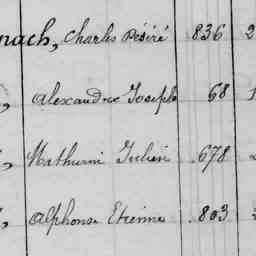 nach, Charles Désiré 836 2
, Alexandre Joseph 68 1
, Mathurin Julien 678
, Alphonse Etienne 803